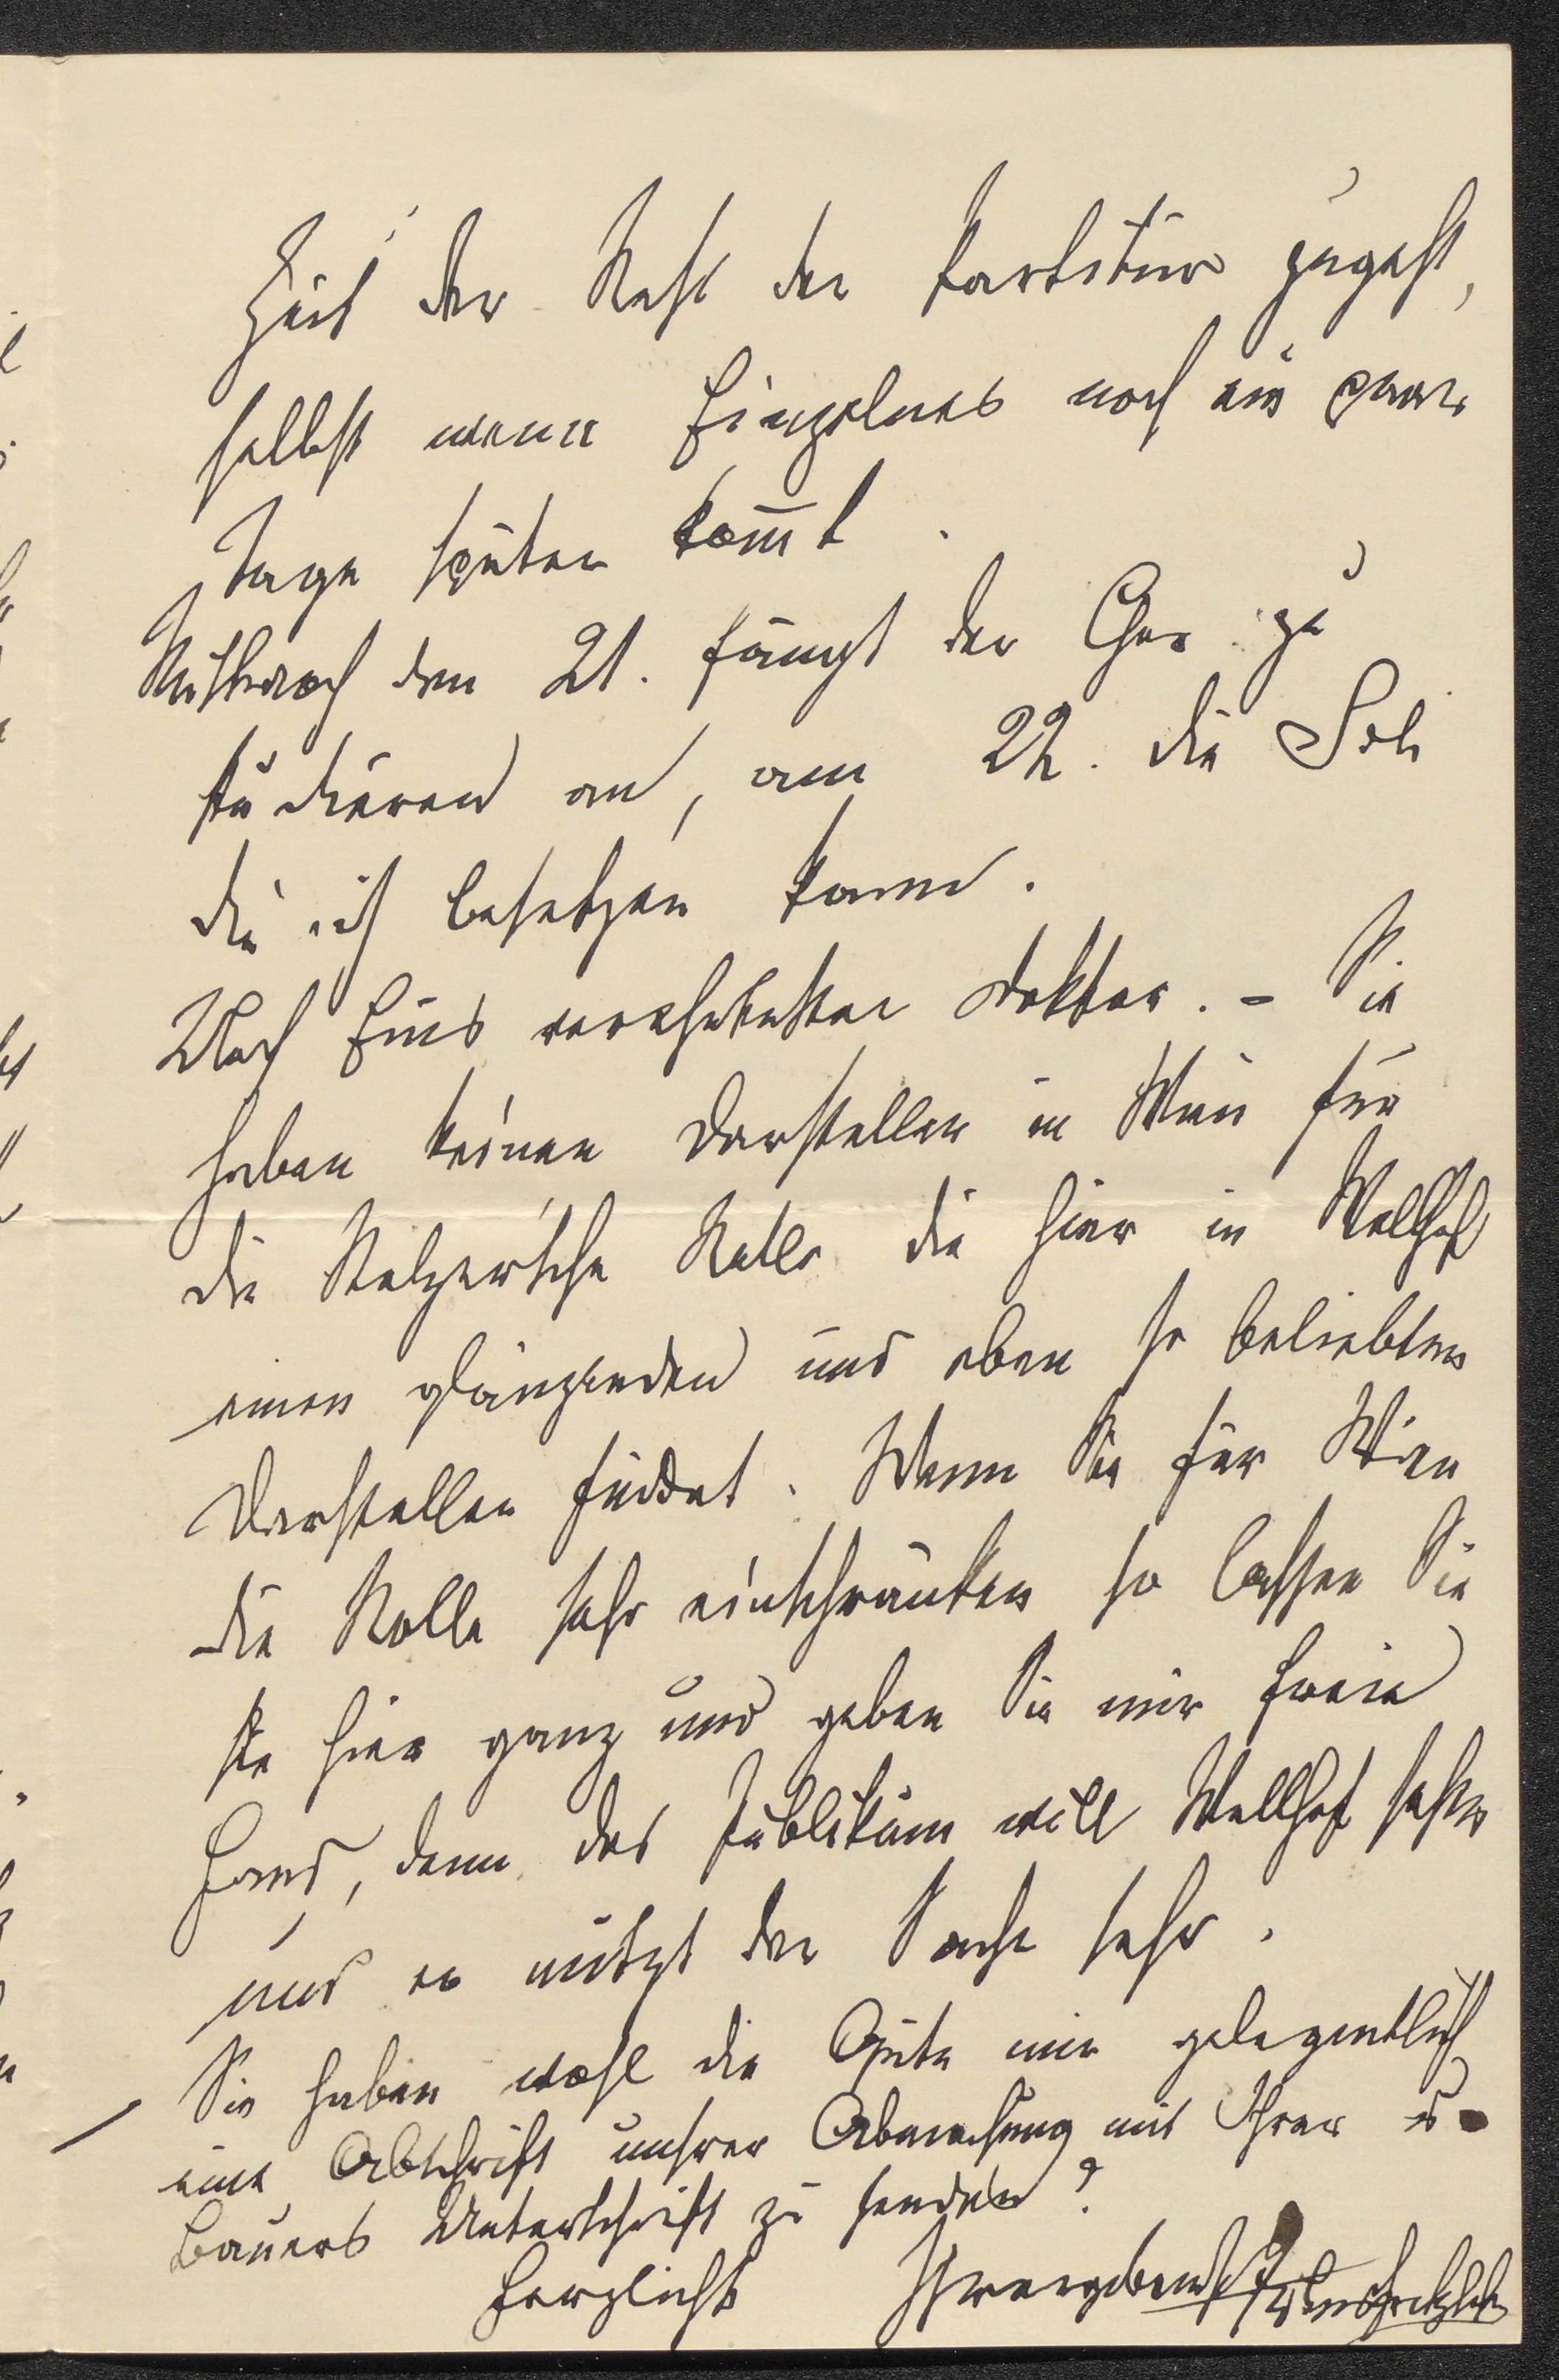 Zeit der Rest der Partitur zugeht,
selbst wenn Einzelnes noch ein paar
Tage später kom̅t.
Mittwoch den 21. fängt der Chor zu
studieren an, am 22. die Soli
die ich besetzen kann.
Noch Eins verehrtester Doktor. – Sie
haben keinen Darsteller in Wien für
die Stelzer'sche Rolle die hier in Wellhof
einen glänzenden und eben so beliebten
Darsteller findet. Wenn Sie für Wien
die Rolle sehr einschränken so lassen Sie
sie hier ganz und geben Sie mir freie
Hand, denn das Publikum will Wellhof sehen
und es nützt der Sache sehr.
Sie haben wohl die Güte mir gelegentlich
eine Abschrift unsrer Abmachung mit Ihrer u.
Bauers Unterschrift zu senden?
Herzlichst Ihr ergebenst